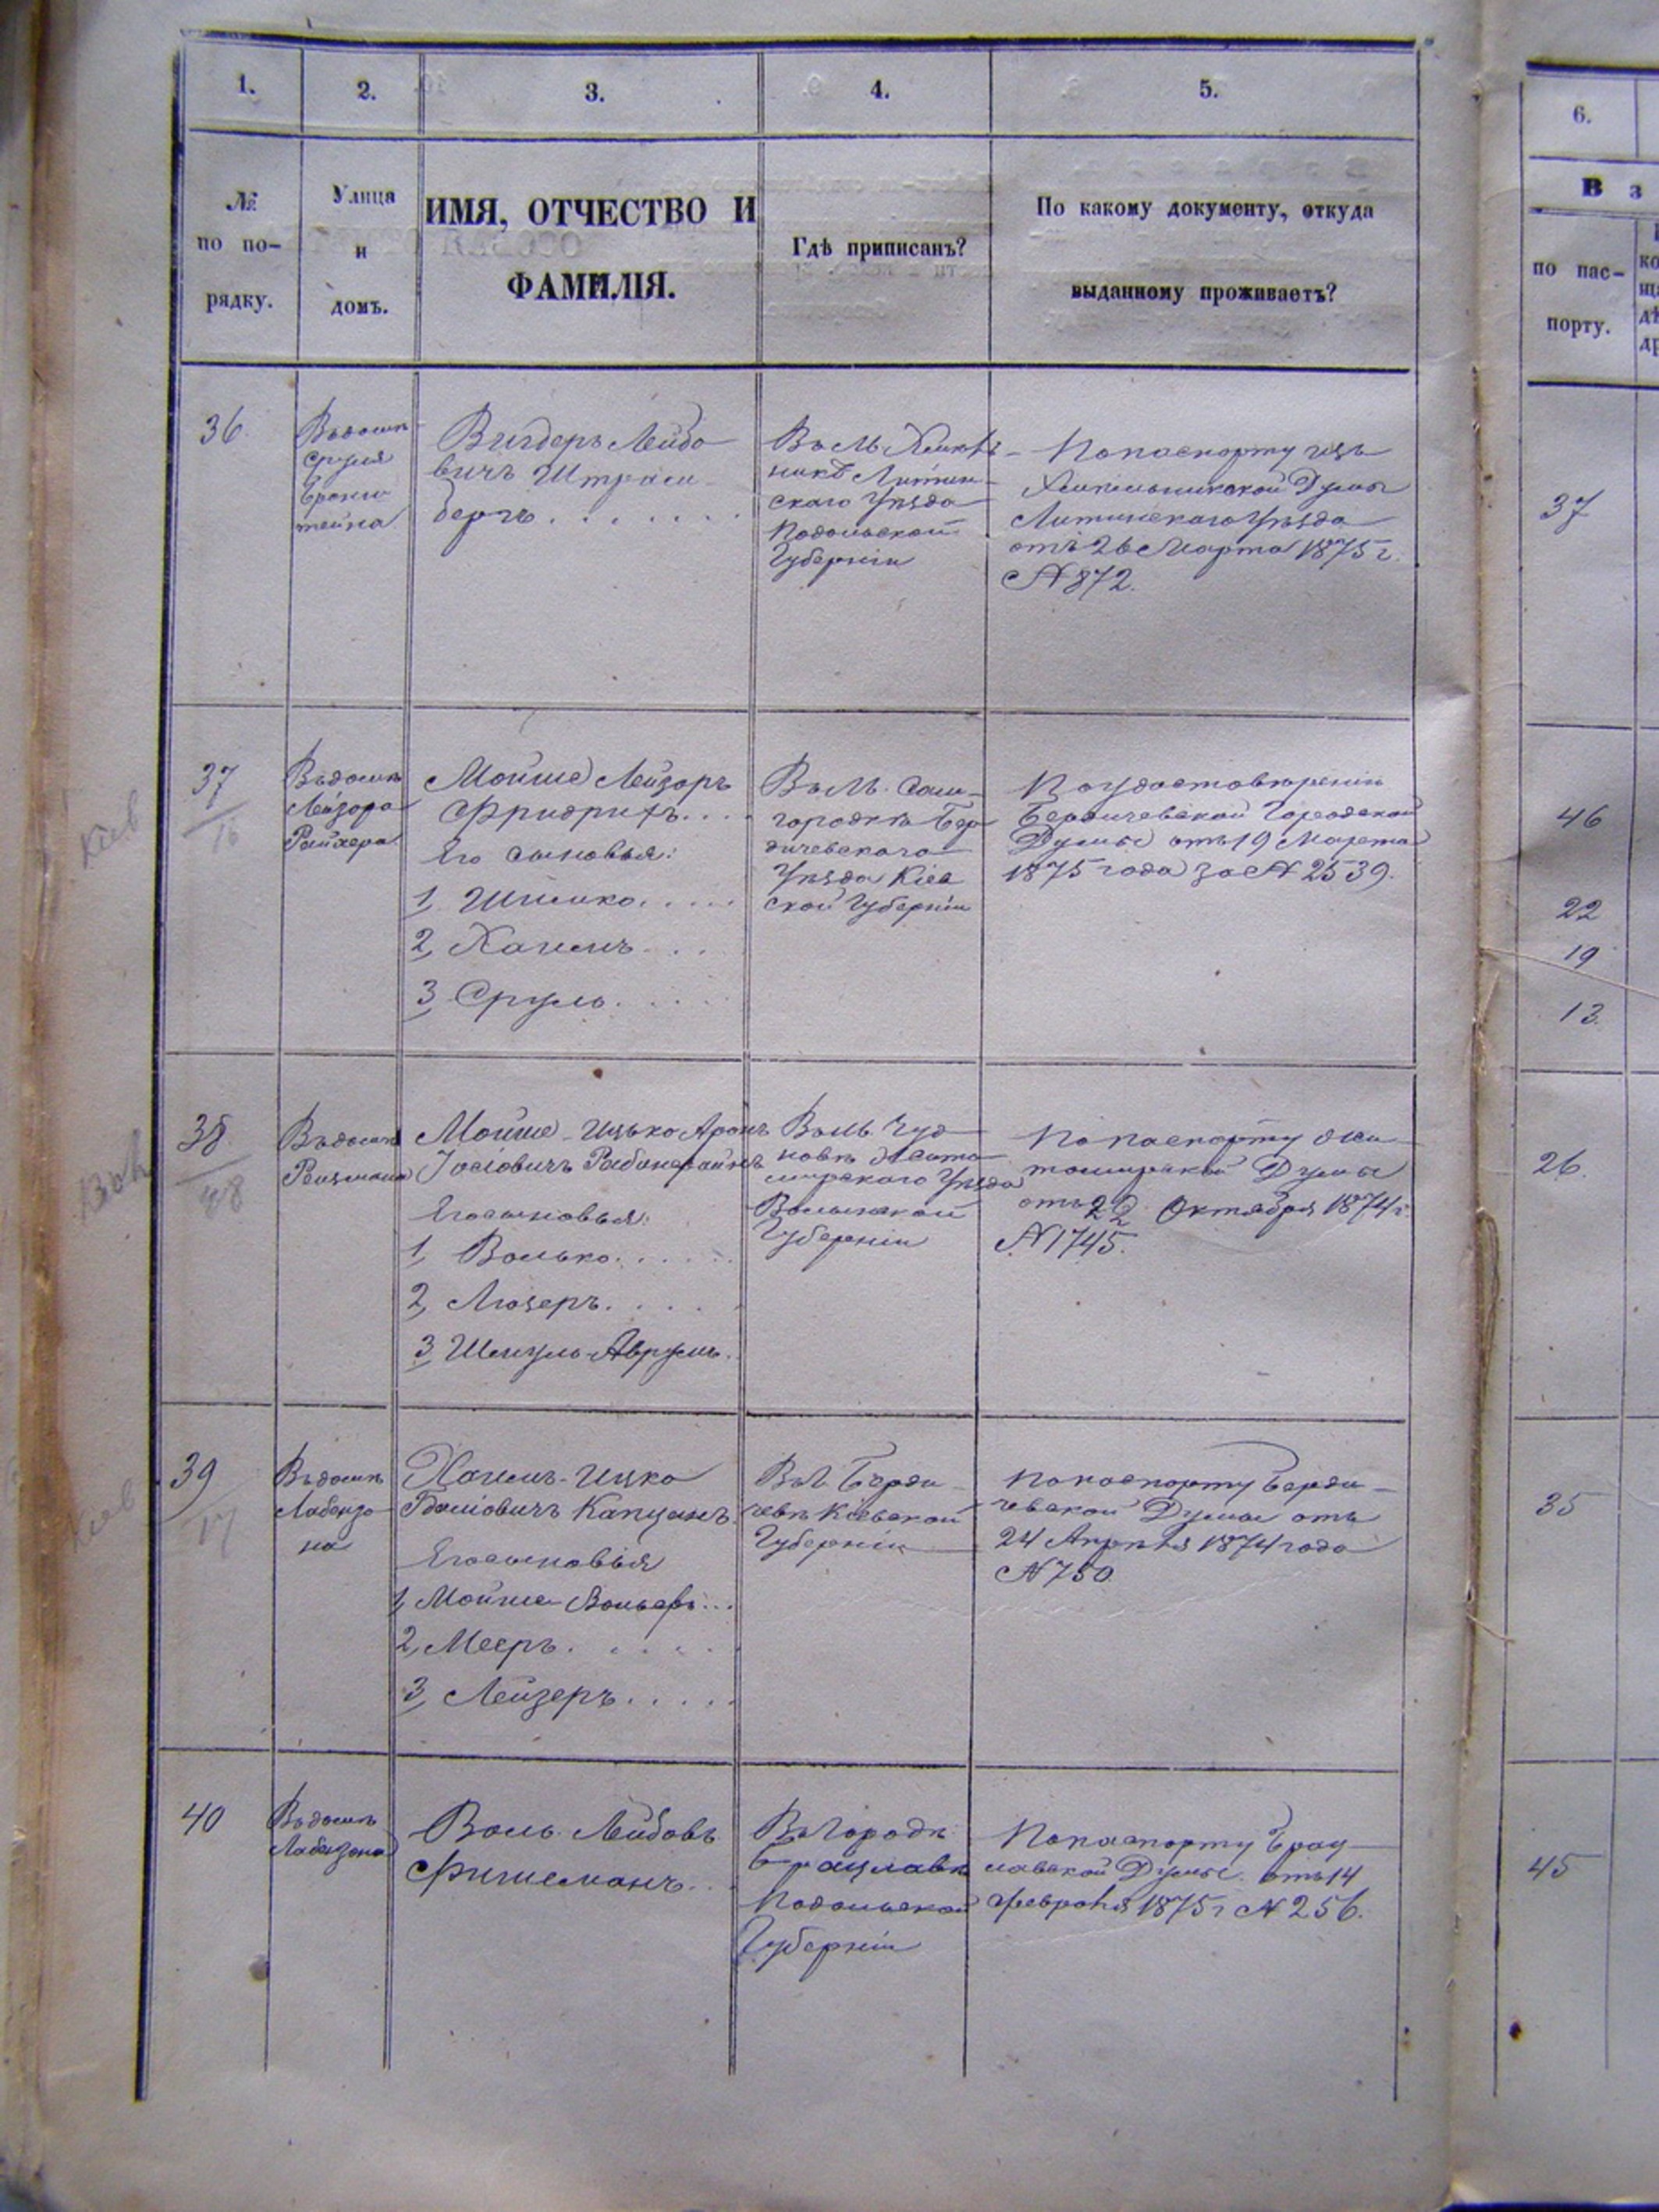 1.
2.
3.
4.
5.
№
по по-
рядку.
Улица
и
домъ.
ИМЯ, ОТЧЕСТВО И
ФАМИЛІЯ.
Гдѣ приписанъ?
По какому документу, откуда
выданному проживаетъ?
36
Въ домѣ
Сруля
Бронш
тейна
Вигдеръ Лейбо
вичъ Штрам
бергъ . . . . . .
Въ М. Хмѣль
никѣ Литин
скаго Уѣзда
Подольской
Губерніи
По паспорту изъ
Хмѣльникской Думы
Литинскаго Уѣзда
отъ 26 Марта 1875 г.
№ 872.
37
16
Кіев
Въ домѣ
Лейзора
Райхера
Мойше Лейзоръ
Фридрихъ. . . .
Его сыновья:
1, Шимко. . . . .
2, Хаимъ . . .
3, Сруль. . . . .
Въ М. Сам-
городкѣ Бер
дичевскаго
Уѣзда Кіев
ской Губерніи
По удостовѣренію
Бердичевской Городской
Думы отъ 19 Марта
1875 года за № 2539.
38
Вол
Въ домѣ
Мойше-Ицько Аронъ
Іосіовичъ
Его сыновья:
1, Волько. . . . . .
2, Люзеръ. . . . .
3, Шмуль-Аврумъ.
Въ М. Чуд
новѣ Жито
мирскаго Уѣзда
Волынской
Губерніи
По паспорту Жи
томирской Думы
отъ 22 Октября 1874 г.
№ 1745.
39
17
Кіев
Въ домѣ
Лабензо
на
Хаимъ-Ицко
Капцанъ
Его сыновья
1, Мойше Вольфъ . . .
2, Мееръ. . . . .
3, Лейзеръ. . . . .
Въ Г. Берди
чевѣ Кіевской
Губерніи
По паспорту Берди-
чевской Думы отъ
24 Апрѣля 1874 года
№ 750
40
Въ домѣ
Лабензона
Воль Лейбовъ
Фишманъ. .
Въ Городѣ
Брацлавѣ
Подольской
Губерніи
По паспорту Брац
лавской Думы отъ 14
Февраля 1875 г № 256.
6.
В з
по пас-
порту.
37
46
22
19
13.
26.
35
45